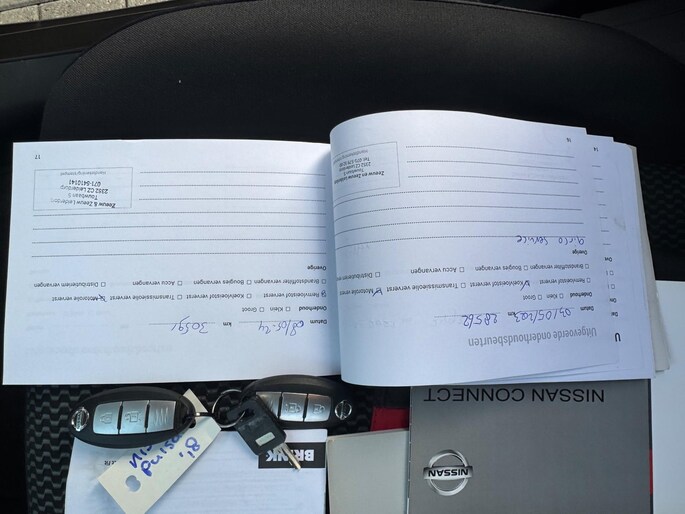 Uitgevoerde onderhoudsbeurten
Datum 03/05/2023 km 28562
Onderhoud □ Klein □ Groot
□ Motorolie ververst □ Transmissieolie ververst ☑ Koelvloeistof ververst □ Remvloeistof ververst
□ Distributieriem □ Accu vervangen □ Bougies vervangen □ Brandstoffilter vervangen
Overige
airco service
Zeeuw en Zeeuw Leiderdorp
2352 CZ Leiderdorp
16
Datum 08/05-24 km 30591
Onderhoud □ Klein □ Groot
Motorolie ververst □ Transmissieolie ververst □ Koelvloeistof ververst Remvloeistof ververst
□ Distributieriem □ Accu vervangen □ Bougies vervangen □ Brandstoffilter vervangen
Overige
Zeeuw & Zeeuw Leiderdorp
Touwbaan 5
2352 CZ Leiderdorp
071-5410141
17
NISSAN CONNECT
NISSAN
BRINK
Nissan
Pulsar
'18